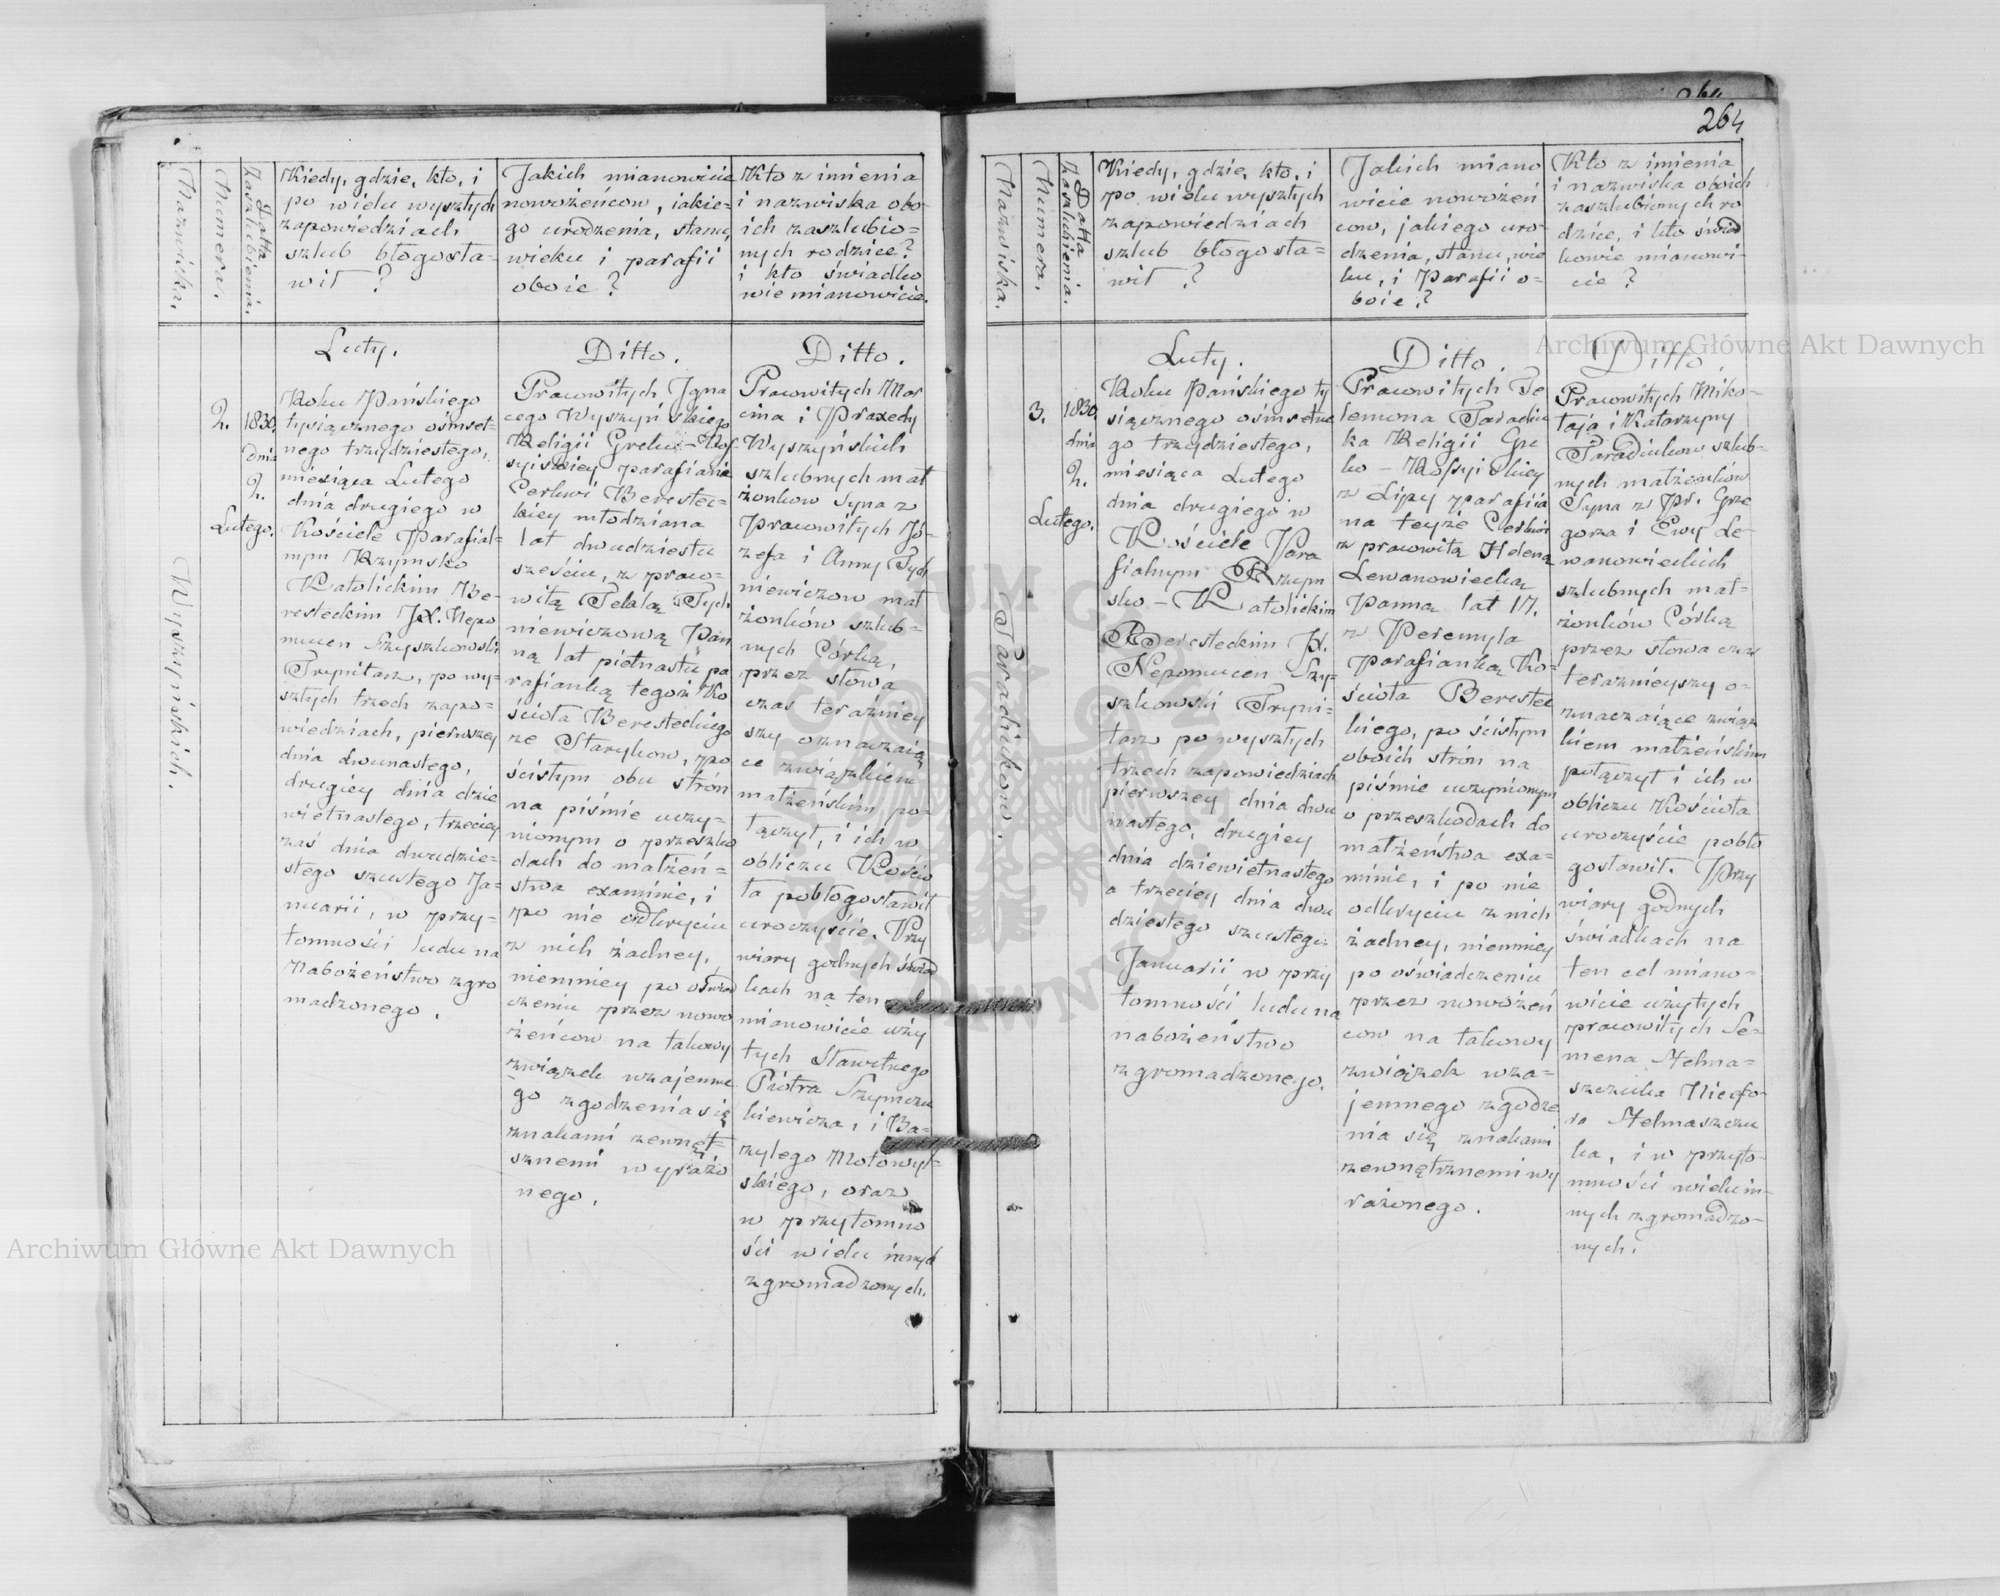 264
Nazwiska.
Numera.
Datta zaszlubienia.
Kiedy, gdzie, kto, i
po wielu wyszłych
zapowiedziach
szlub błogosła-
wił ?
Jakich mianowicie
nowożeńcow, iakie-
go urodzenia, stanu,
wieku i parafii
oboie ?
Kto z imienia
i nazwiska obo-
ich zaszlubio=
nych rodzice?
i kto świadko
wie mianowicie.
Wyszyńskich.
2.
1830.
dnia
2.
Lutego.
Luty.
Roku Pańskiego
tysiącznego ośmset-
nego trzydziestego,
miesiąca Lutego
dnia drugiego w
Kościele Parafial-
nym Rzymsko
Katolickim Be-
resteckim JX. Nepo
mucen Szyszkowski
Trynitarz, po wy-
szłych trzech zapo-
wiedziach, pierwszey
dnia dwunastego,
drugiey dnia dzie
wietnastego, trzeciey
zaś dnia dwudzie-
stego szustego Ja-
nuarii, w przy-
tomności ludu na
Nabożeństwo zgro
madzonego.
Ditto.
Pracowitych Igna
cego Wyszyńskiego
Religii Greko-Ros
syiskiey parafiana
Cerkwi Berestec-
kiey młodziana
lat dwudziestu
sześciu, z praco-
witą Teklą Tych
niewiczową Pan
ną lat piętnastu pa
rafianką tegoż Ko
ścioła Beresteckiego
ze Starykow, po
ścisłym obu strón
na piśmie uczy-
nionym o przeszko
dach do małżeń=
stwa examinie, i
po nie odkryciu
z nich żadney,
niemniey po oświad
czeniu przez nowo
żeńcow na takowy
związek wzajemne
go zgodzenia się
znakami zewnęt-
sznemi wyrażo
nego.
Ditto.
Pracowitych Mar
cina i Praxedy
Wyszyńskich
szlubnych mał
żonkow Syna z
pracowitych Jó-
zefa i Anny Tych
niewiczow mał
żonków szlub-
nych Córką,
przez słowa
czas teraźniey
szy oznaczaią
ce związkiem
małżeńskim po-
łączył, i ich w
obliczu Kościo
ła pobłogosławił
uroczyście. Przy
wiary godnych świad
kach na ten
mianowicie uży
tych Sławetnego
Piotra Szymczu
kiewicza, i Ba-
zylego Mołowyl-
skiego, oraz
w przytomno
ści wielu innych
zgromadzonych.
Nazwiska.
Numera.
Datta zaszlubienia.
Kiedy, gdzie, kto, i
po wielu wyszłych
zapowiedziach
szlub błogosła-
wił ?
Jakich miano
wicie nowożeń
cow, jakiego uro-
dzenia, stanu, wie
ku, i Parafii o-
boie ?
Kto z imienia
i nazwiska oboich
zaszlubionych ro
dzice, i kto świad
kowie mianowi-
cie ?
Paradiukow.
3.
1830.
dnia
2.
Lutego.
Luty.
Roku Pańskiego ty
siącznego ośmsetne
go trzydziestego,
miesiąca Lutego
dnia drugiego w
Kościele Para
fialnym Rzym
sko - Katolickim
Beresteckim JX.
Nepomucen Szy-
szkowski Tryni-
tarz po wyszłych
trzech zapowiedziach
pierwszey dnia dwu
nastego, drugiey
dnia dziewietnastego
a trzeciey dnia dwu
dziestego szustego
Januarii w przy
tomności ludu na
nabożeństwo
zgromadzonego.
Ditto.
Pracowitych Te
lemona Paradiu
ka Religii Gre
ko - Rossyiskiey
z Lipy parafiia
na teyże Cerkwi
z pracowitą Heleną
Lewanowiecką
Panną lat 17.
z Peremyla
parafianką Ko-
ścioła Berestec
kiego, po ścisłym
oboich strón na
piśmie uczynionym
o przeszkodach do
małżeństwa exa-
minie, i po nie
odkryciu z nich
żadney, niemniey
po oświadczeniu
przez nowożeń
cow na takowy
związek wza-
jemnego zgodze
nia się znakami
zewnętrznemi wy
rażonego.
Ditto.
Pracowitych Miko-
łaja i Katarzyny
Paradiukow szlub-
nych małżonków
Syna z Pr. Grze
gorza i Ewy Le-
wanowieckich
szlubnych mał-
żonków Córką
przez słowa czas
teraznieyszy o-
znaczaiące związ
kiem małżeńskim
połączył i ich w
obliczu Kościoła
uroczyście pobło
gosławił. Przy
wiary godnych
świadkach na
ten cel miano-
wicie użytych
pracowitych Se-
mena Stelma-
szczuka Nicefo-
ra Stelmaszczu
ka, i w przyto-
mności wielu in-
nych zgromadzo-
nych.
Archiwum Główne Akt Dawnych
Archiwum Główne Akt Dawnych